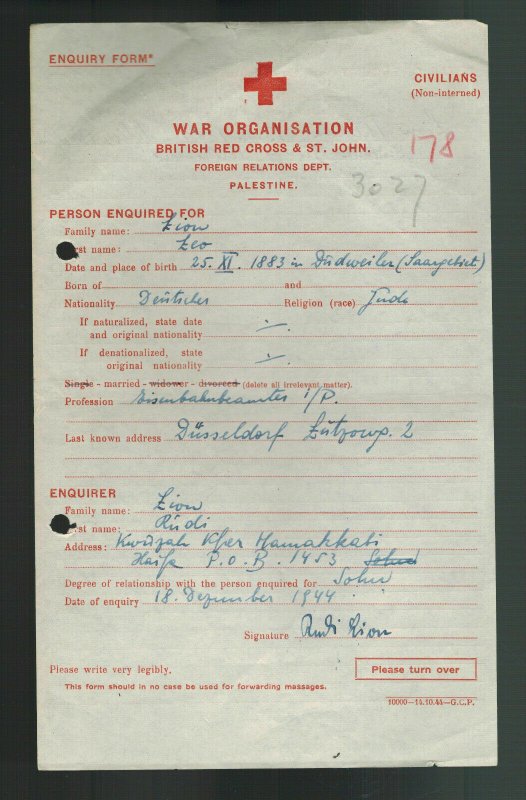 ENQUIRY FORM*
CIVILIANS
(Non-interned)
WAR ORGANISATION
BRITISH RED CROSS & ST. JOHN.
178
FOREIGN RELATIONS DEPT.
PALESTINE.
3027
PERSON ENQUIRED FOR
Family name: Lion
rst name: Leo
Date and place of birth 25. XI. 1883 in Dudweiler (Saargebiet)
Born of and
Nationality Deutscher Religion (race) Jude
If naturalized, state date
and original nationality —.
If denationalized, state
original nationality —.
Single - married - widower - divorced (delete all irrelevant matter).
Profession Eisenbahnbeamter i/P.
Last known address Düsseldorf Lützowp. 2
ENQUIRER
Family name: Lion
rst name: Rudi
Address: Kwuzah Kfer Hamakkabi
Haifa P.O.B. 1453 Sohn
Degree of relationship with the person enquired for Sohn
Date of enquiry 18. Dezember 1944
Signature Rudi Lion
Please write very legibly.
Please turn over
This form should in no case be used for forwarding messages.
10000—14.10.44—G.C.P.